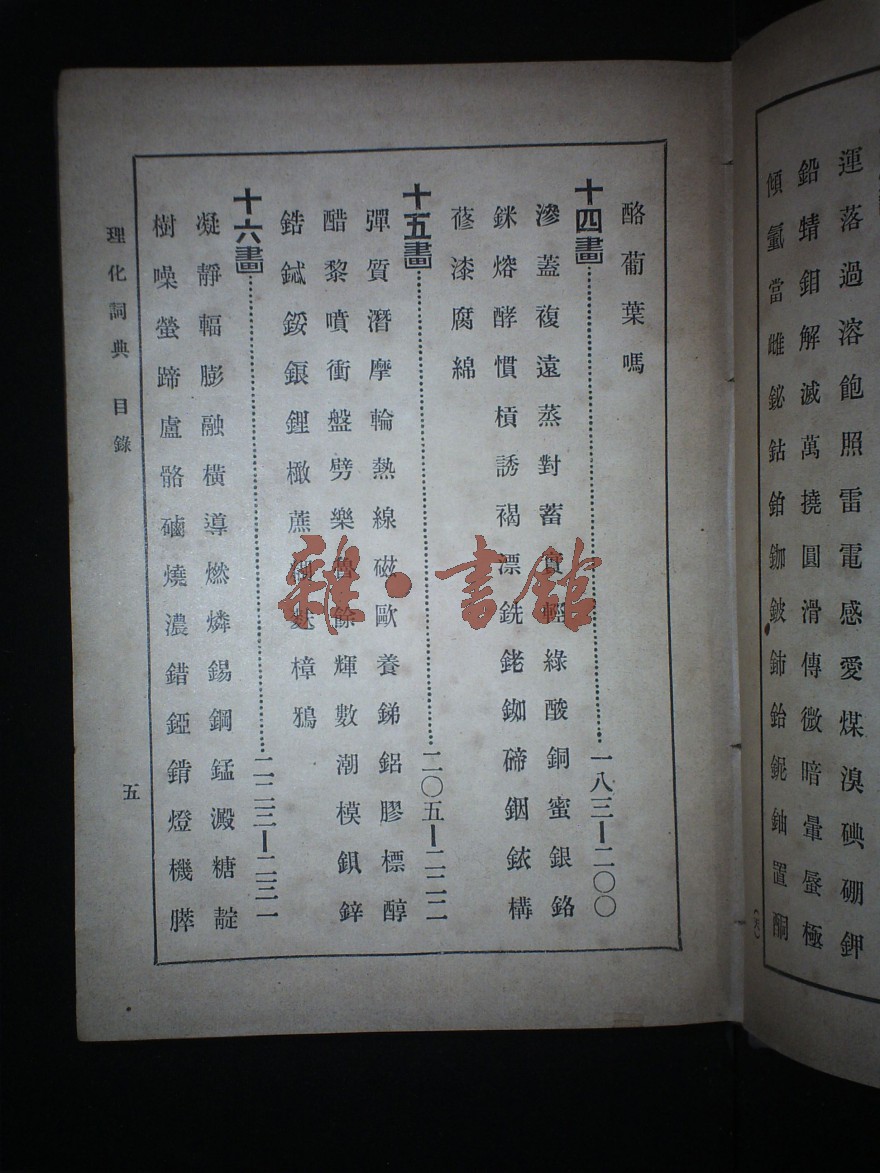 運落過溶飽照雷電感愛煤溴碘硼鉀
鉛蜻鉬解滅萬撓圓滑傳微暗暈蜃極
傾氫當雌鉍鈷鉑鉫鈹鈰鉿鈮鈾置酮
酪葡葉嗎
十四畫 一八三—二〇〇
滲蓋複遠蒸對蓄實輕綠酸銅蜜銀鉻
銤熔酵慣槓誘褐漂銑銠銣碲銦銥構
蓚漆腐綿
十五畫 二〇五—二二二
彈質潛摩輪熱線磁歐養銻鋁膠標醇
醋黎噴衝盤劈樂魯餘輝數潮模鋇鋅
鋯鋱鋖鋃鋰橄蔗麩樟鴉
十六畫 二二三—二三一
凝靜輻膨融橫導燃燐錫鋼錳澱糖靛
樹噪螢蹄盧骼磠燒濃錯錏錆燈機膵
理化詞典 目錄
五
雜·書館